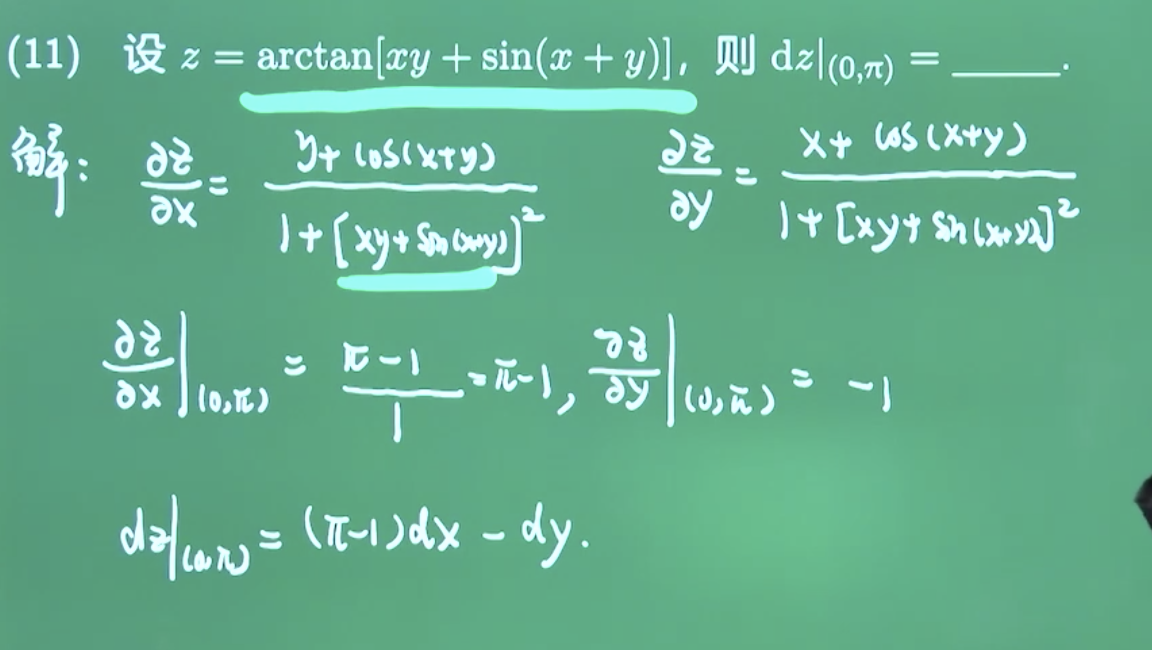 (11) 设 z = arctan[xy + sin(x + y)], 则 dz|(0,π) = _____.
解: ∂z/∂x = (y + cos(x+y)) / (1 + [xy + sin(x+y)]²) ∂z/∂y = (x + cos(x+y)) / (1 + [xy + sin(x+y)]²)
∂z/∂x|(0,π) = (π-1)/1 = π-1, ∂z/∂y|(0,π) = -1
dz|(0,π) = (π-1)dx - dy.